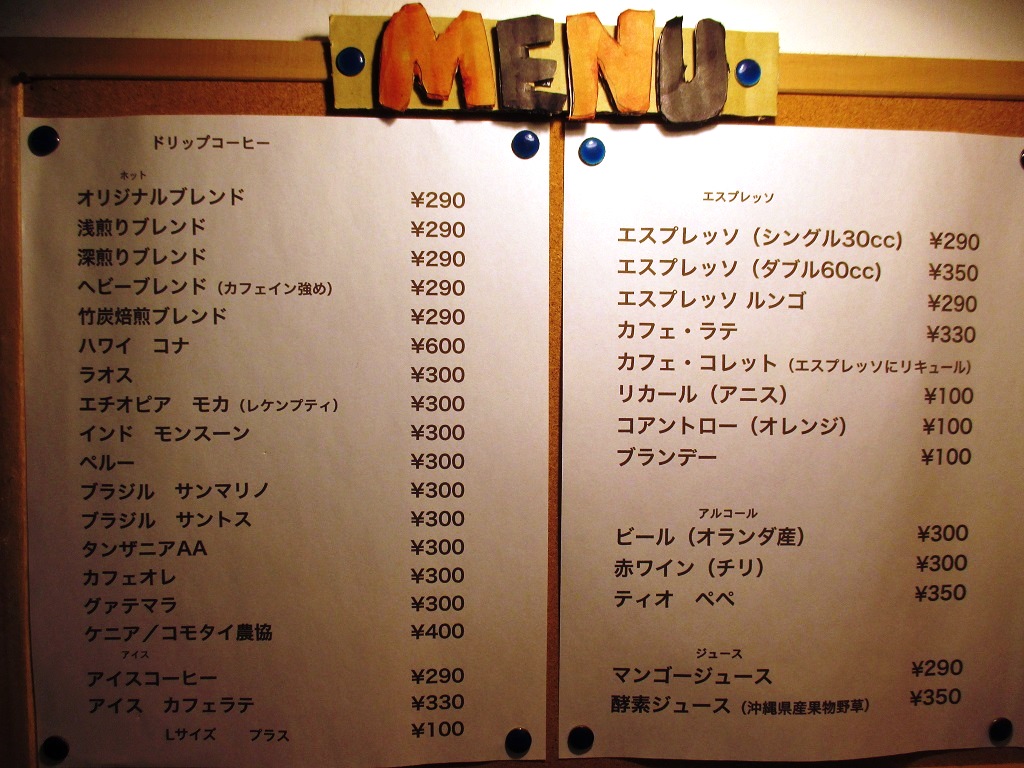 MENU
ドリップコーヒー
ホット
オリジナルブレンド ¥290
浅煎りブレンド ¥290
深煎りブレンド ¥290
ヘビーブレンド（カフェイン強め） ¥290
竹炭焙煎ブレンド ¥290
ハワイ　コナ ¥600
ラオス ¥300
エチオピア　モカ（レケンプティ） ¥300
インド　モンスーン ¥300
ペルー ¥300
ブラジル　サンマリノ ¥300
ブラジル　サントス ¥300
タンザニアAA ¥300
カフェオレ ¥300
グァテマラ ¥300
ケニア／コモタイ農協 ¥400
アイス
アイスコーヒー ¥290
アイス　カフェラテ ¥330
Lサイズ　プラス ¥100
エスプレッソ
エスプレッソ（シングル30cc） ¥290
エスプレッソ（ダブル60cc） ¥350
エスプレッソ ルンゴ ¥290
カフェ・ラテ ¥330
カフェ・コレット（エスプレッソにリキュール）
リカール（アニス） ¥100
コアントロー（オレンジ） ¥100
ブランデー ¥100
アルコール
ビール（オランダ産） ¥300
赤ワイン（チリ） ¥300
ティオ　ペペ ¥350
ジュース
マンゴージュース ¥290
酵素ジュース（沖縄県産果物野草） ¥350